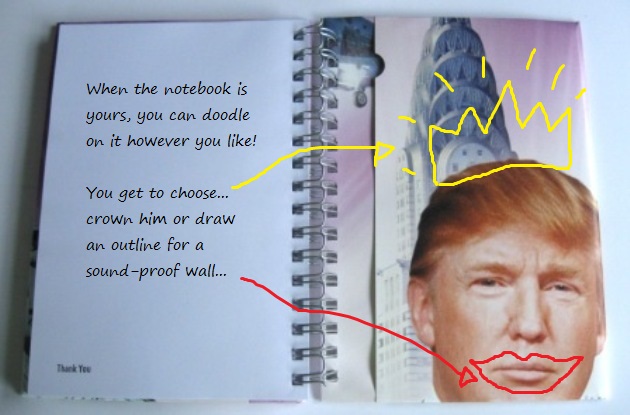 When the notebook is
yours, you can doodle
on it however you like!
You get to choose...
crown him or draw
an outline for a
sound-proof wall...
Thank You